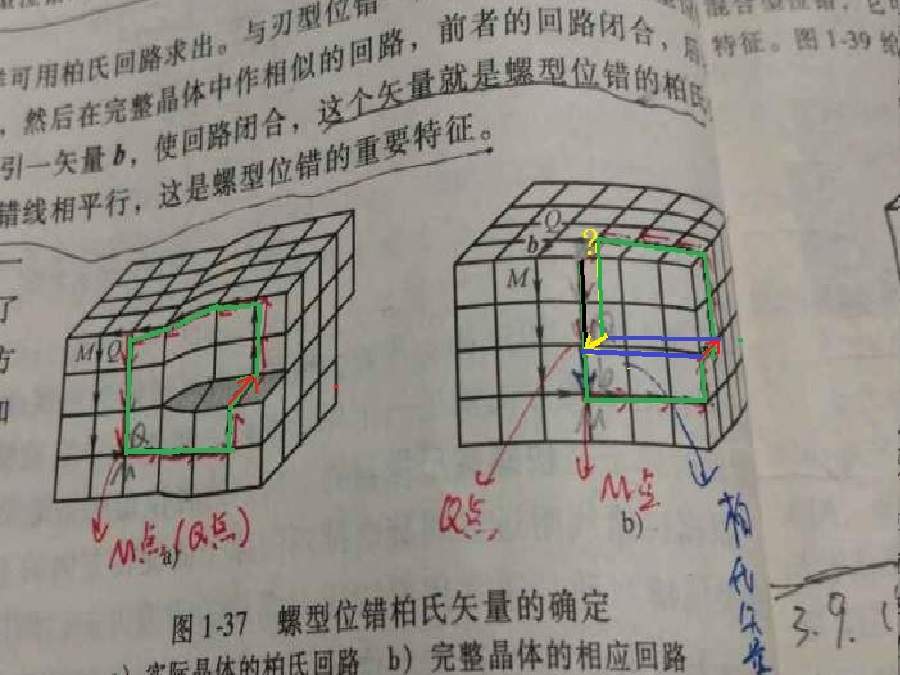 可用柏氏回路求出。与刃型位错
，然后在完整晶体中作相似的回路，前者的回路闭合，
特征。图1-39
引一矢量b，使回路闭合，这个矢量就是螺型位错的柏氏
错线相平行，这是螺型位错的重要特征。
了
方
如
M
Q
Q
M
Q
b
?
M
M点(Q点)
a)
Q点
M点
b)
柏氏矢量
图1-37 螺型位错柏氏矢量的确定
a) 实际晶体的柏氏回路 b) 完整晶体的相应回路
3.9.